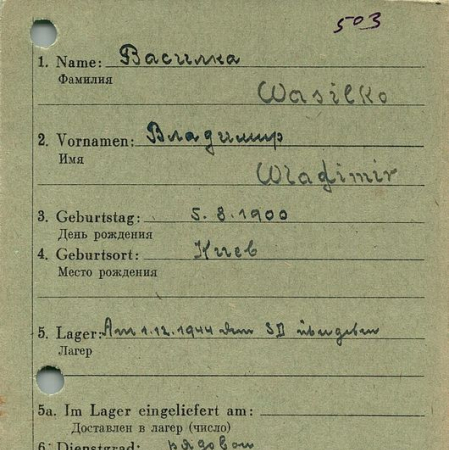 503
1. Name: Василка
Фамилия
Wasilko
2. Vornamen: Владимир
Имя
Wladimir
3. Geburtstag: 5.8.1900
День рождения
4. Geburtsort: Киев
Место рождения
5. Lager: Am 1.12.1944 dem SD übergeben
Лагер
5a. Im Lager eingeliefert am:
Доставлен в лагер (число)
6. Dienstgrad: рядовой